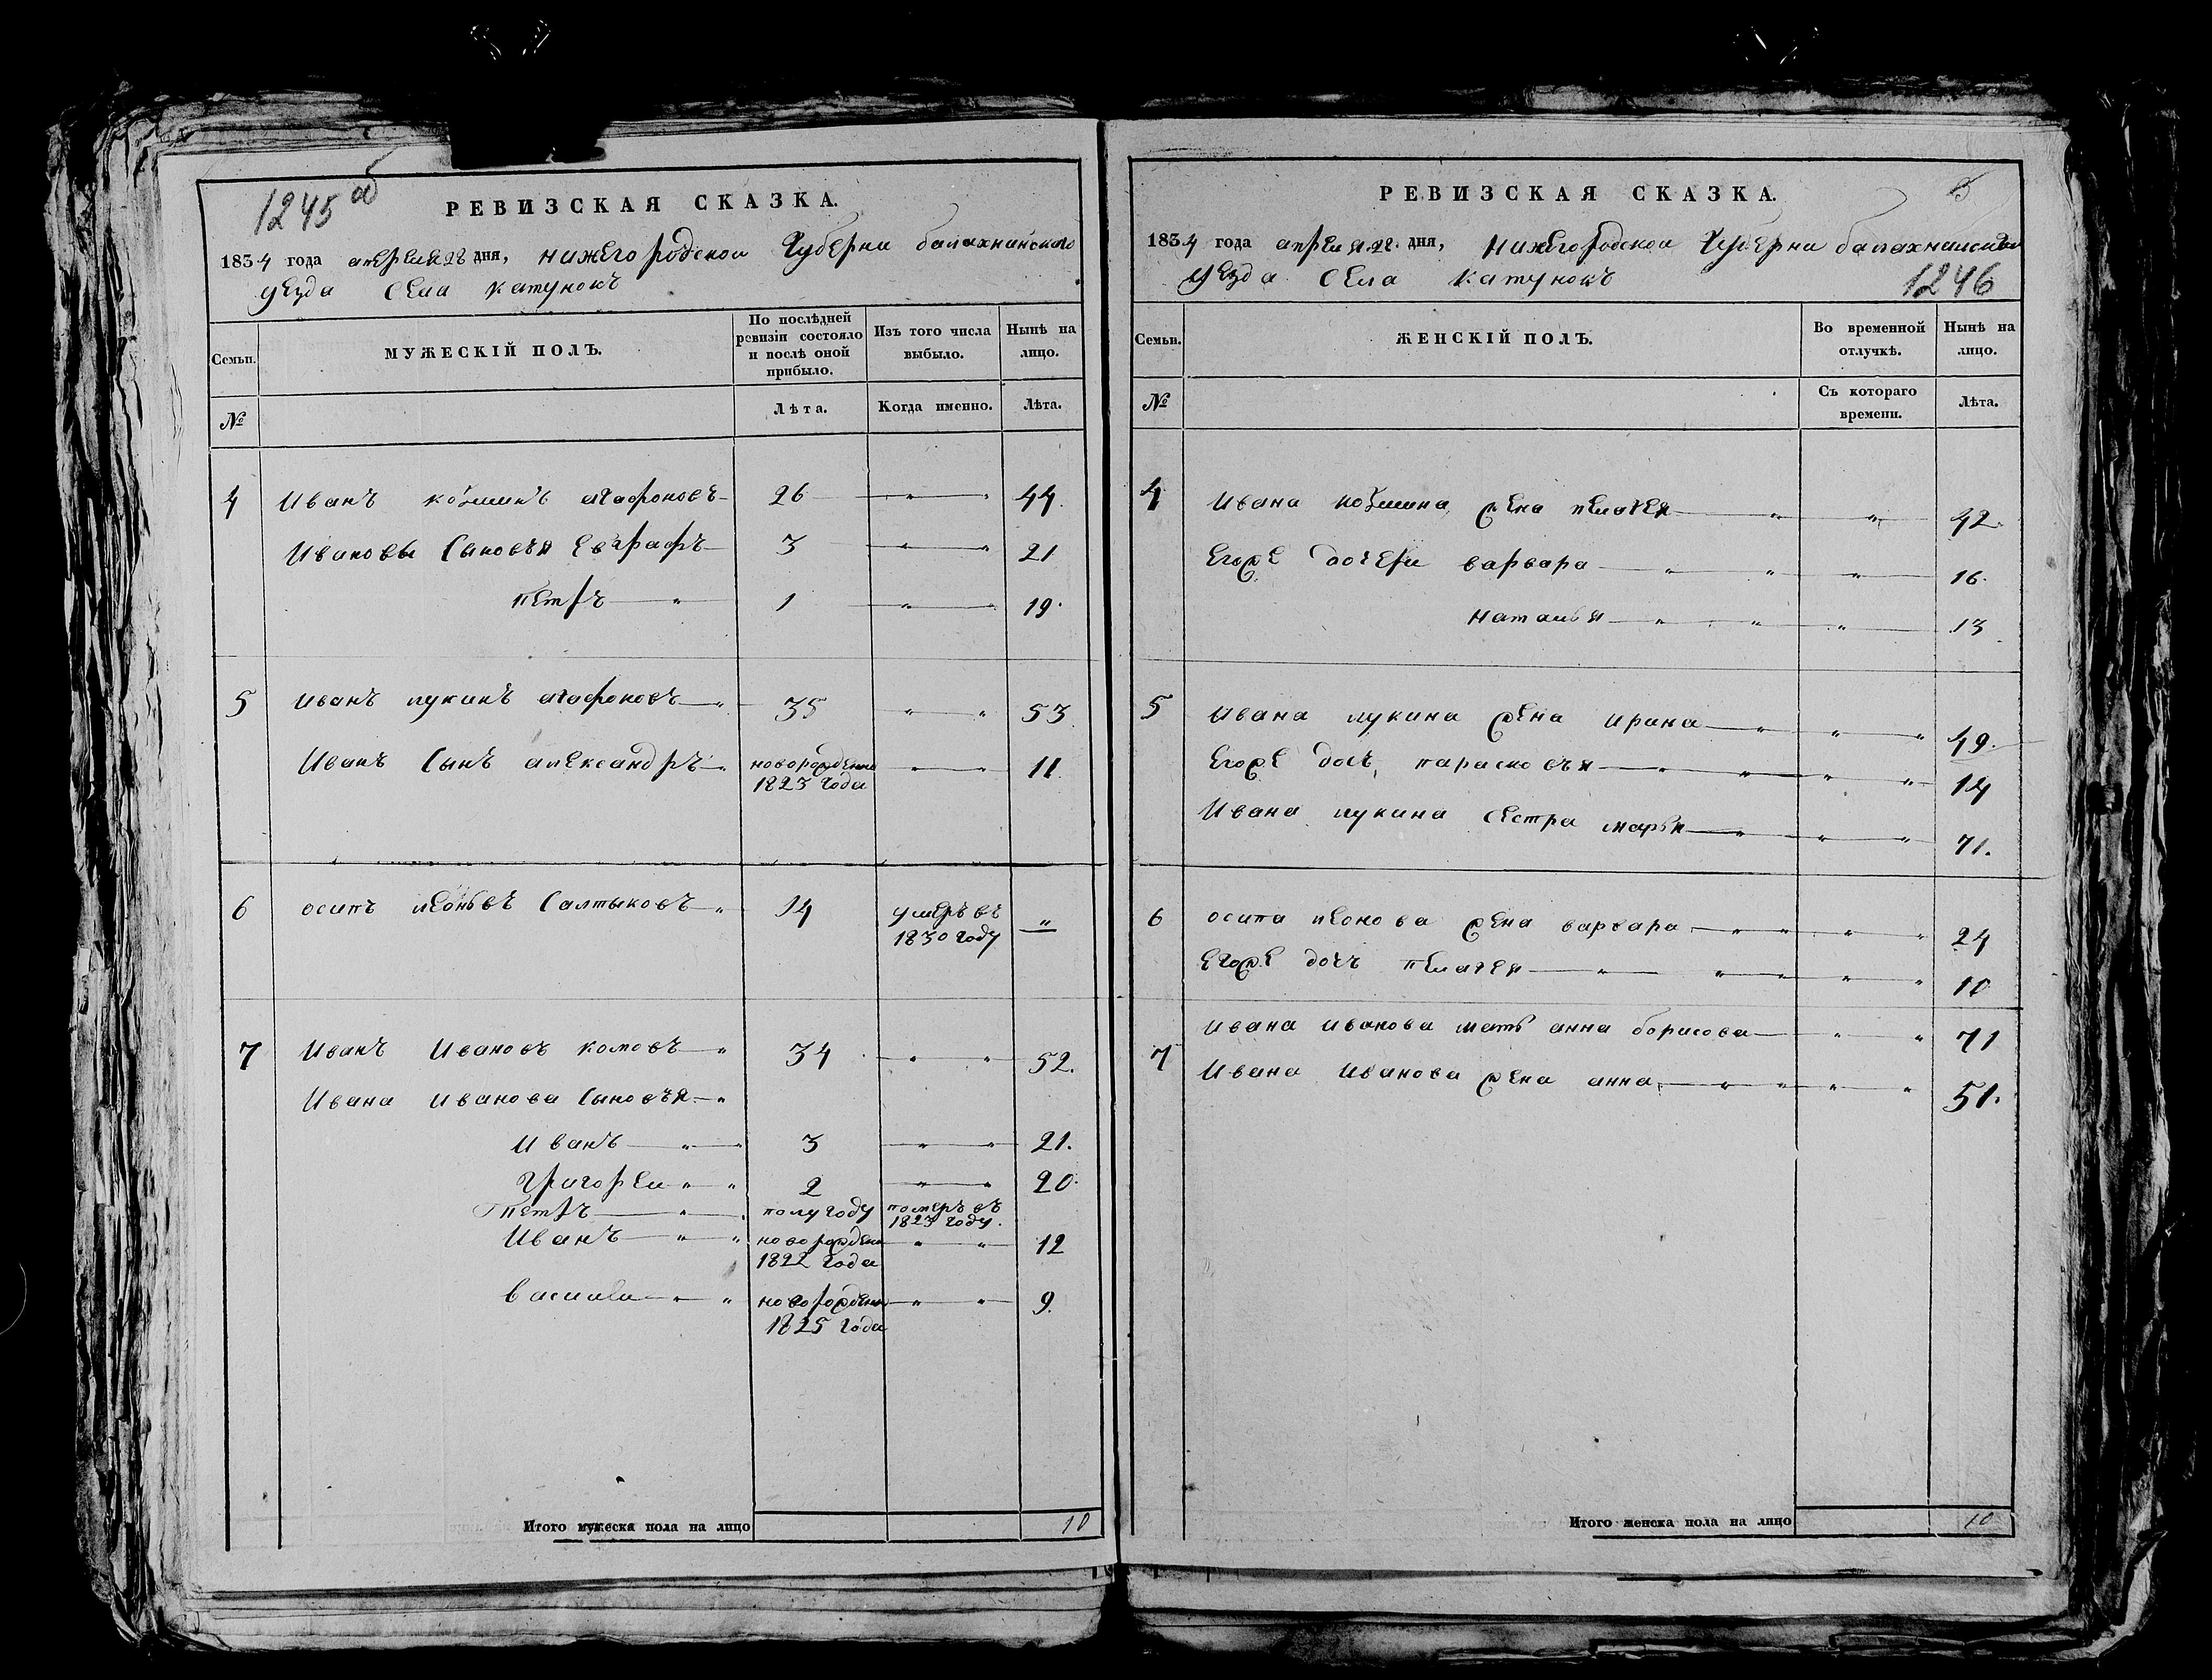 1245 об
РЕВИЗСКАЯ СКАЗКА.
1834 года апреля 28 дня, нижегородской Губерни балахнинского
уезда села катунокъ
Семьи.
МУЖЕСКІЙ ПОЛЪ.
По послѣдней ревизіи состояло и послѣ оной прибыло.
Изъ того числа выбыло.
Нынѣ на лицо.
№
Лѣта.
Когда именно.
Лѣта.
4 Иванъ козминъ агафоновъ 26 " " 44.
Ивановы Сыновья Евграфъ 3 " " 21
петръ " 1 " " 19.
5 Иванъ лукинъ агафоновъ " 35 " " 53.
Иванъ Сынъ александръ " новорожденно 1823 года " " 11
6 осипъ леоновъ Салтыковъ " 14 умеръ въ 1830 году "
7 Иванъ Ивановъ комовъ " 34 " " 52.
Ивана Иванова Сыновья "
Иванъ " " 3 " " 21.
Григореи " " 2 " " 20.
петръ " " полугоду померъ въ 1823 году.
Иванъ " " новорожден 1822 года " " 12
василеи " " новорожден 1825 года " " 9.
Итого мужеска пола на лицо 10
5
РЕВИЗСКАЯ СКАЗКА.
1834 года апреля 28 дня, Нижегородской Губерни балахнинского
уезда села катунокъ
1246
Семьи.
ЖЕНСКІЙ ПОЛЪ.
Во временной отлучкѣ.
Нынѣ на лицо.
№
Съ котораго времени.
Лѣта.
4 Ивана козмина жена пелагея " " 42.
Егоже дочери варвара " " " 16.
Наталья " " " 13
5 Ивана лукина жена ирина " " " 49.
Егоже дочь парасковья " " " " 14
Ивана лукина сестра марья " " " 71.
6 осипа леонова жена варвара " " " " 24
Егоже дочь пелагея " " " " " 10
7 ивана иванова мать анна борисова " " 71
Ивана Иванова жена анна " " " " 51.
Итого женска пола на лицо 10